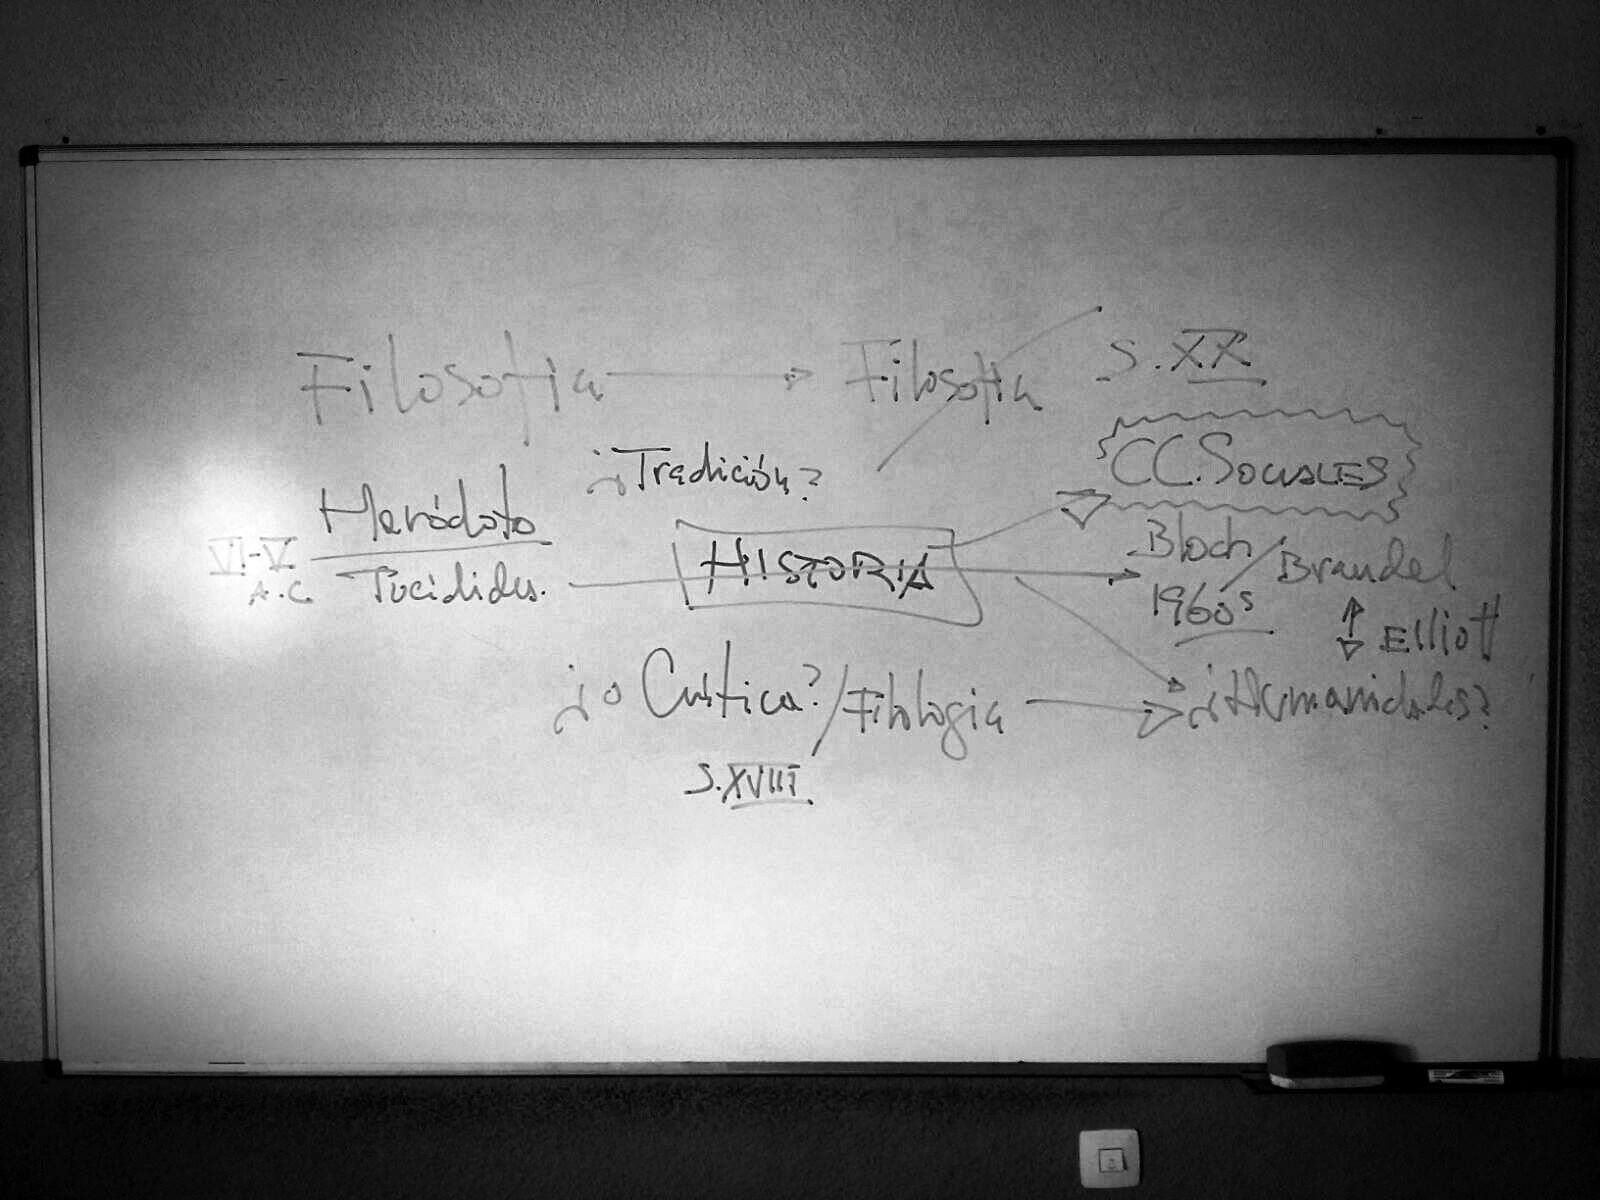 Filosofia → Filosofia S.XX
¿Tradición?
CC.SOCIALES
Heródoto
VI-V
A.C.
Tucídides.
HISTORIA
Bloch / Braudel
1960s
Elliott
¿o Crítica? / Filología
¿Humanidades?
S.XVIII.